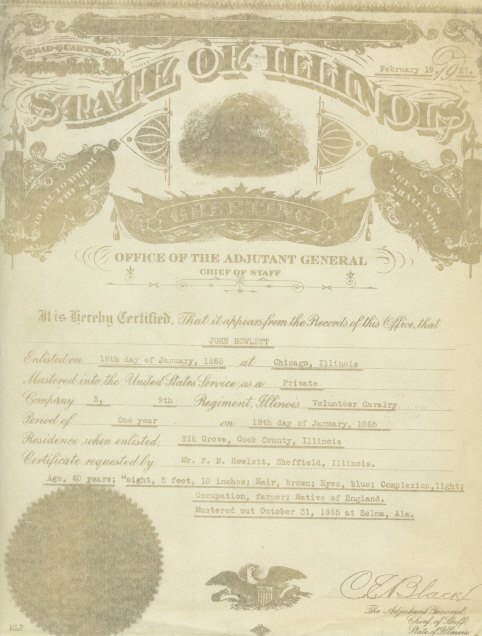 HEAD-QUARTERS
Springfield, Ill.
February 19 1927.
STATE OF ILLINOIS
TO ALL TO WHOM
THESE
PRESENTS
SHALL COME
GREETING
OFFICE OF THE ADJUTANT GENERAL
CHIEF OF STAFF
It is Hereby Certified, That it appears from the Records of this Office, that
JOHN HOWLETT
Enlisted on 18th day of January, 1865 at Chicago, Illinois
Mustered into the United States Service as a Private
Company B, 9th Regiment, Illinois Volunteer Cavalry
Period of One year on 18th day of January, 1865
Residence when enlisted, Elk Grove, Cook County, Illinois
Certificate requested by Mr. F. H. Howlett, Sheffield, Illinois.
Age, 40 years; "eight, 5 feet, 10 inches; Hair, brown; Eyes, blue; Complexion,light;
Occupation, farmer; Native of England.
Mustered out October 31, 1865 at Selma, Ala.
C E Black
The Adjutant General,
Chief of Staff,
State of Illinois
MLP